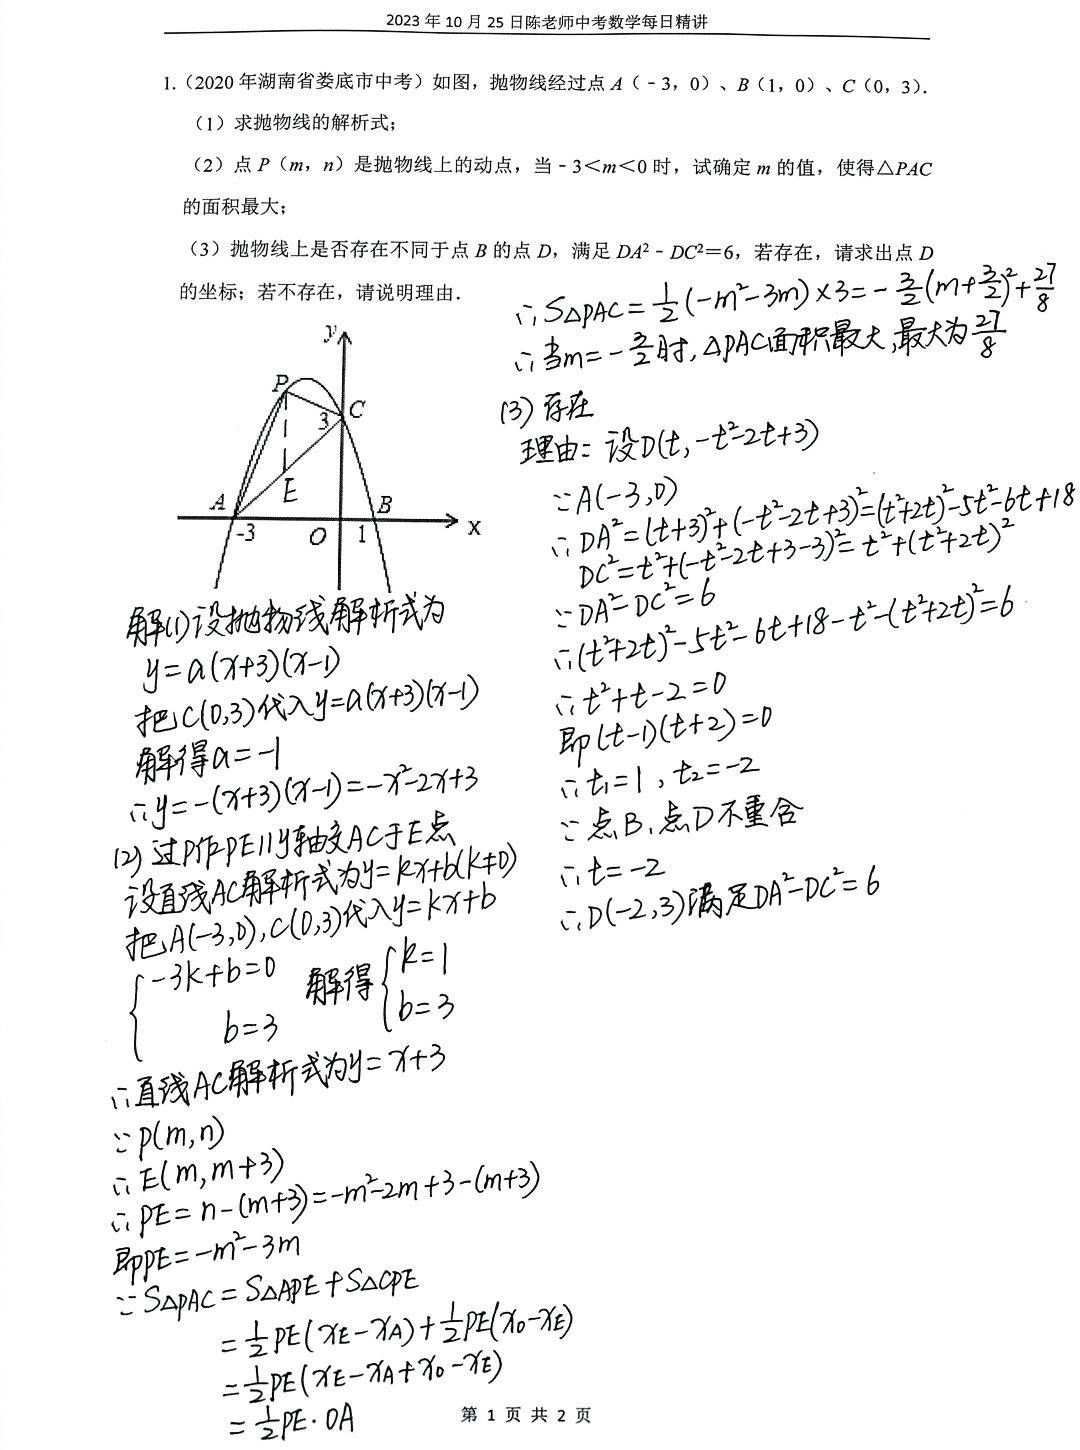 2023 年 10 月 25 日陈老师中考数学每日精讲
1.（2020 年湖南省娄底市中考）如图，抛物线经过点 A（﹣3，0）、B（1，0）、C（0，3）．
（1）求抛物线的解析式；
（2）点 P（m，n）是抛物线上的动点，当﹣3＜m＜0 时，试确定 m 的值，使得△PAC
的面积最大；
（3）抛物线上是否存在不同于点 B 的点 D，满足 DA²﹣DC²＝6，若存在，请求出点 D
的坐标；若不存在，请说明理由．
y
P
3
C
E
A
B
-3
O
1
x
解(1)设抛物线解析式为
y=a(x+3)(x-1)
把C(0,3)代入y=a(x+3)(x-1)
解得a=-1
∴y=-(x+3)(x-1)=-x²-2x+3
(2)过P作PE∥y轴交AC于E点
设直线AC解析式为y=kx+b(k≠0)
把A(-3,0),C(0,3)代入y=kx+b
{-3k+b=0
b=3
解得
{k=1
b=3
∴直线AC解析式为y=x+3
∵P(m,n)
∴E(m,m+3)
∴PE=n-(m+3)=-m²-2m+3-(m+3)
即PE=-m²-3m
∵S△PAC=S△APE+S△CPE
=1/2PE(xE-xA)+1/2PE(xO-xE)
=1/2PE(xE-xA+xO-xE)
=1/2PE·OA
∴S△PAC=1/2(-m²-3m)×3=-3/2(m+3/2)²+27/8
∴当m=-3/2时,△PAC面积最大,最大为27/8
(3)存在
理由:设D(t,-t²-2t+3)
∵A(-3,0)
∴DA²=(t+3)²+(-t²-2t+3)²=(t²+2t)²-5t²-6t+18
DC²=t²+(-t²-2t+3-3)²=t²+(t²+2t)²
∵DA²-DC²=6
∴(t²+2t)²-5t²-6t+18-t²-(t²+2t)²=6
∴t²+t-2=0
即(t-1)(t+2)=0
∴t₁=1,t₂=-2
∵点B、点D不重合
∴t=-2
∴D(-2,3)满足DA²-DC²=6
第 1 页 共 2 页